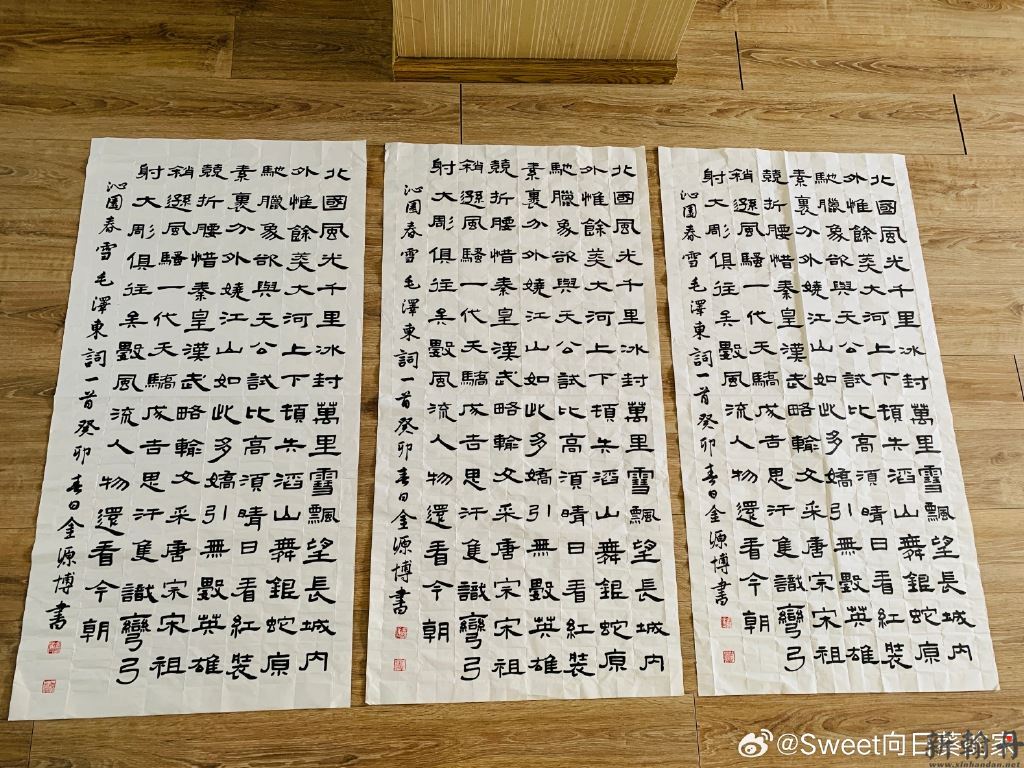 北國風光千里冰封萬里雪飄望長城內
外惟餘莽大河上下頓失滔山舞銀蛇原
馳臘象欲與天公試比高須晴日看紅裝
素裹分外嬈江山如此多嬌引無數英雄
競折腰惜秦皇漢武略輸文采唐宗宋祖
稍遜風騷一代天驕成吉思汗隻識彎弓
射大彫俱往矣數風流人物還看今朝
沁園春雪毛澤東詞一首癸卯春日金源博書
北國風光千里冰封萬里雪飄望長城內
外惟餘莽大河上下頓失滔山舞銀蛇原
馳臘象欲與天公試比高須晴日看紅裝
素裹分外嬈江山如此多嬌引無數英雄
競折腰惜秦皇漢武略輸文采唐宗宋祖
稍遜風騷一代天驕成吉思汗隻識彎弓
射大彫俱往矣數風流人物還看今朝
沁園春雪毛澤東詞一首癸卯春日金源博書
北國風光千里冰封萬里雪飄望長城內
外惟餘莽大河上下頓失滔山舞銀蛇原
馳臘象欲與天公試比高須晴日看紅裝
素裹分外嬈江山如此多嬌引無數英雄
競折腰惜秦皇漢武略輸文采唐宗宋祖
稍遜風騷一代天驕成吉思汗隻識彎弓
射大彫俱往矣數風流人物還看今朝
沁園春雪毛澤東詞一首癸卯春日金源博書
@Sweet向日葵
www.xinhandan.net